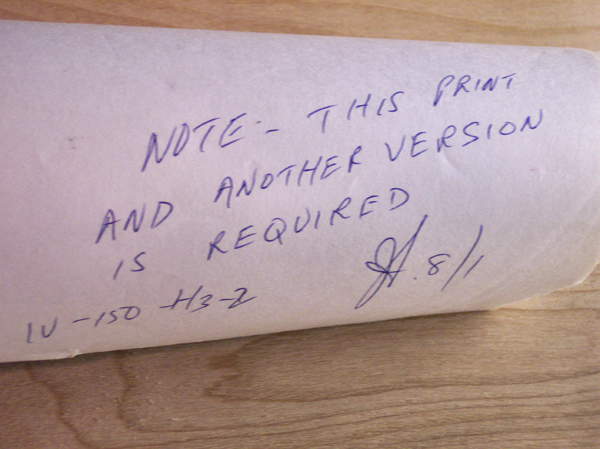 NOTE:- THIS PRINT
AND ANOTHER VERSION
IS REQUIRED
8/1
IU-150-H3-2